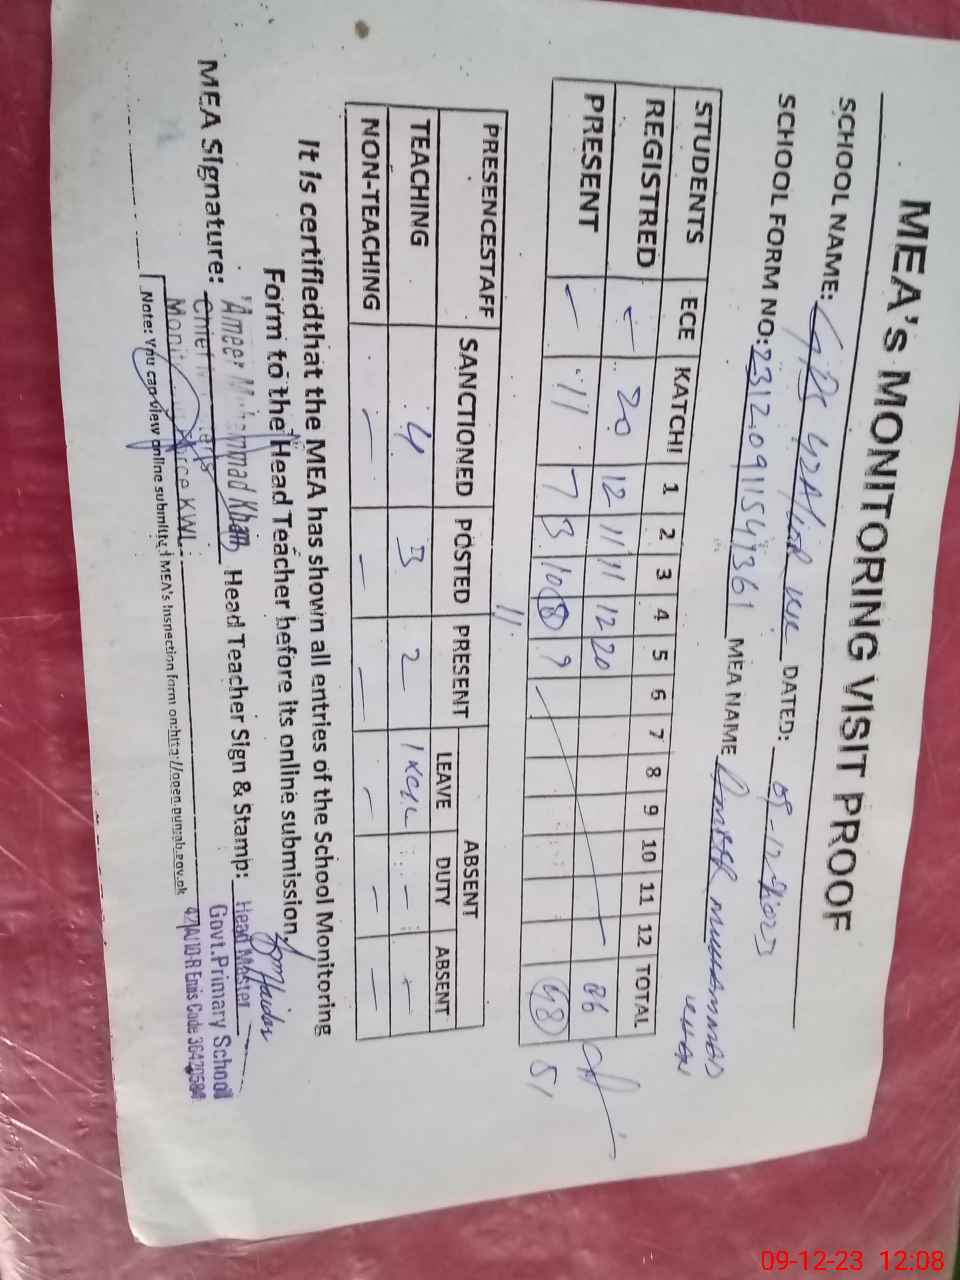 MEA's MONITORING VISIT PROOF
SCHOOL NAME: GPS 42A/10R KWL DATED: 09-12-2023
SCHOOL FORM NO: 2312.0911541361 MEA NAME Ameer Muhammad
Khan
STUDENTS ECE KATCHI 1 2 3 4 5 6 7 8 9 10 11 12 TOTAL
REGISTRED - 20 12 11 11 12 20 86
PRESENT - 11 7 3 10 8 9 48 51
11
PRESENCESTAFF SANCTIONED POSTED PRESENT ABSENT
LEAVE DUTY ABSENT
TEACHING 4 3 2 1 - -
NON-TEACHING - - - - - -
It is certifiedthat the MEA has shown all entries of the School Monitoring
Form to the Head Teacher before its online submission.
MEA Signature: Head Teacher Sign & Stamp:
Ameer Muhammad Khan
Head Master
Govt.Primary School
Emis Code
Note: You can view online submitted MEA's Inspection form on:http://open.punjab.gov.pk
09-12-23 12:08